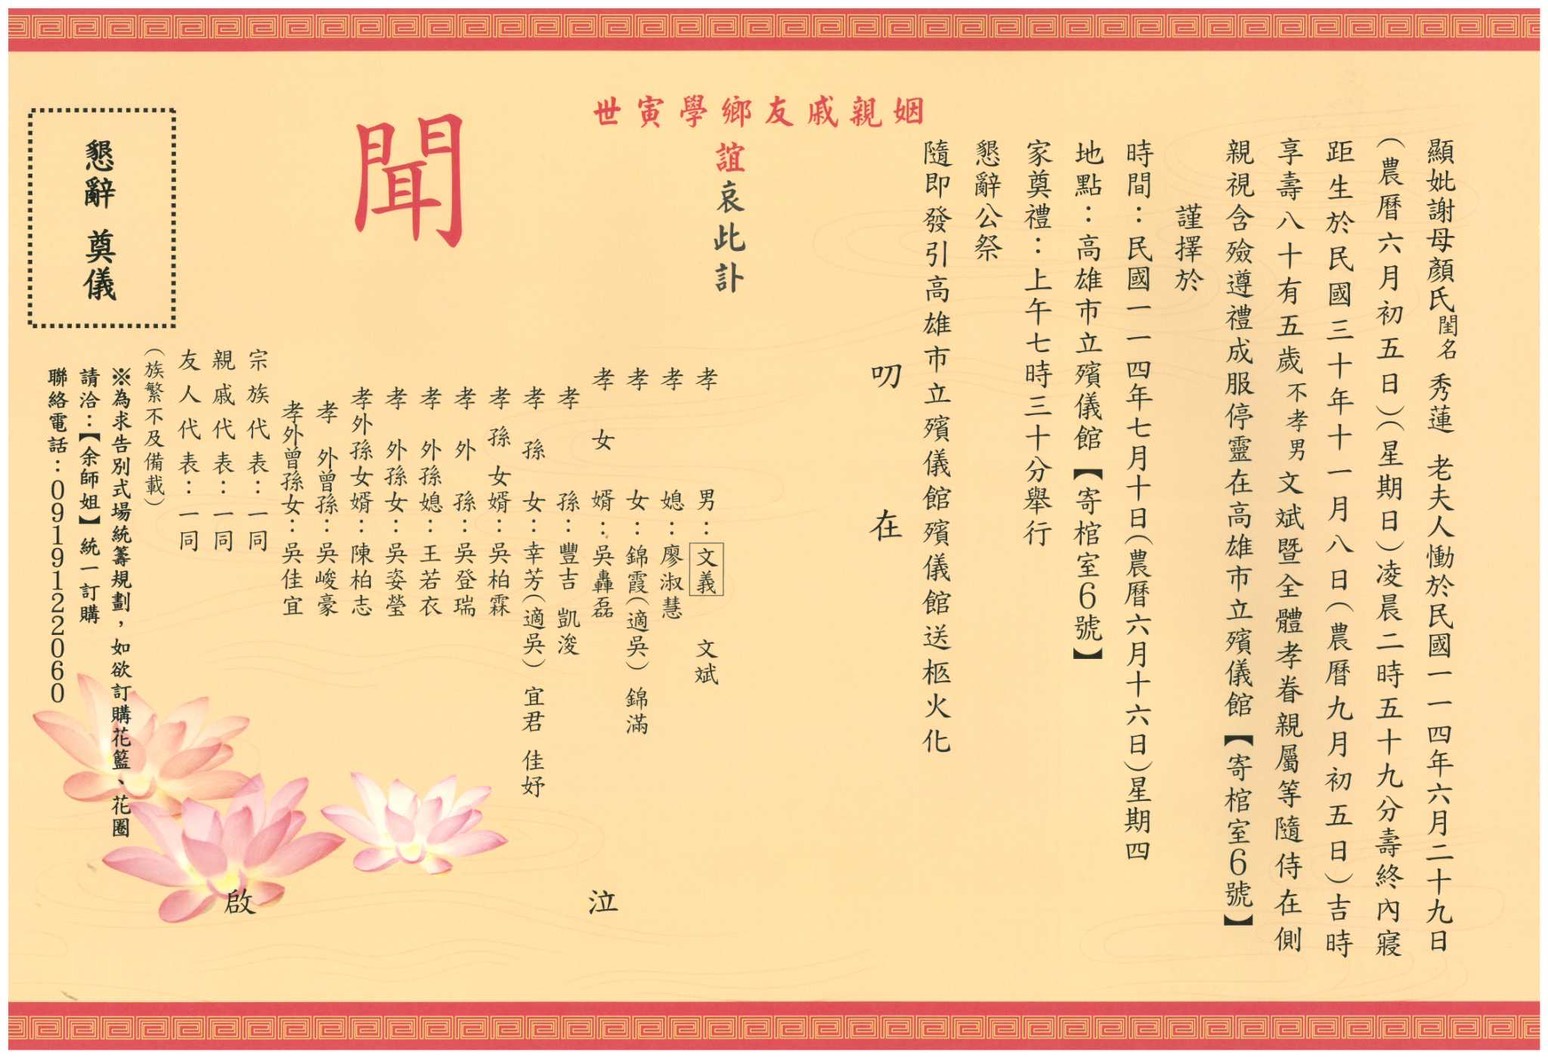 顯妣謝母顏氏閨名秀蓮 老夫人慟於民國一一四年六月二十九日
(農曆六月初五日)(星期日)凌晨二時五十九分壽終內寢
距生於民國三十年十一月八日(農曆九月初五日)吉時
享壽八十有五歲不孝男文斌暨全體孝眷親屬等隨侍在側
親視含殮遵禮成服停靈在高雄市立殯儀館【寄棺室6號】
謹擇於
時間：民國一一四年七月十日(農曆六月十六日)星期四
地點：高雄市立殯儀館【寄棺室6號】
家奠禮：上午七時三十分舉行
懇辭公祭
隨即發引高雄市立殯儀館殯儀館送柩火化
叨在
姻親戚友鄉學寅世
誼哀此訃
聞
孝男：文義 文斌
孝媳：廖淑慧
孝女：錦霞(適吳) 錦滿
孝女婿：吳轟磊
孝孫：豐吉 凱浚
孝孫女：幸芳(適吳) 宜君 佳妤
孝孫女婿：吳柏霖
孝外孫：吳登瑞
孝外孫媳：王若衣
孝外孫女：吳姿瑩
孝外孫女婿：陳柏志
孝外曾孫：吳峻豪
孝外曾孫女：吳佳宜
泣
啟
宗族代表：一同
親戚代表：一同
友人代表：一同
(族繁不及備載)
※為求告別式場統籌規劃，如欲訂購花籃、花圈
請洽：【余師姐】統一訂購
聯絡電話：0919122060
懇辭 奠儀